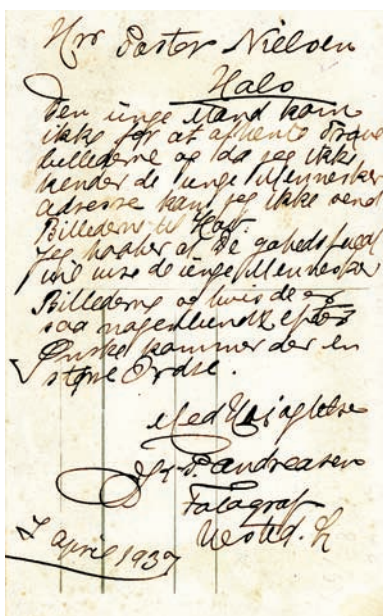 Hrr Pastor Nielsen
Halo
Den unge Mand kom
ikke for at afhente Prøve
billederne og da jeg ikke
kender de unge Mennesker
adresse kan jeg ikke send
Billederne til
Jeg haaber at De
vil vise de unge Mennesker
Billederne og hvis de er
saa nogenlunde efter
Ønske kommer der en
større Ordre.
Med Højagtelse
P. Andreasen
Fotograf
7 april 1937